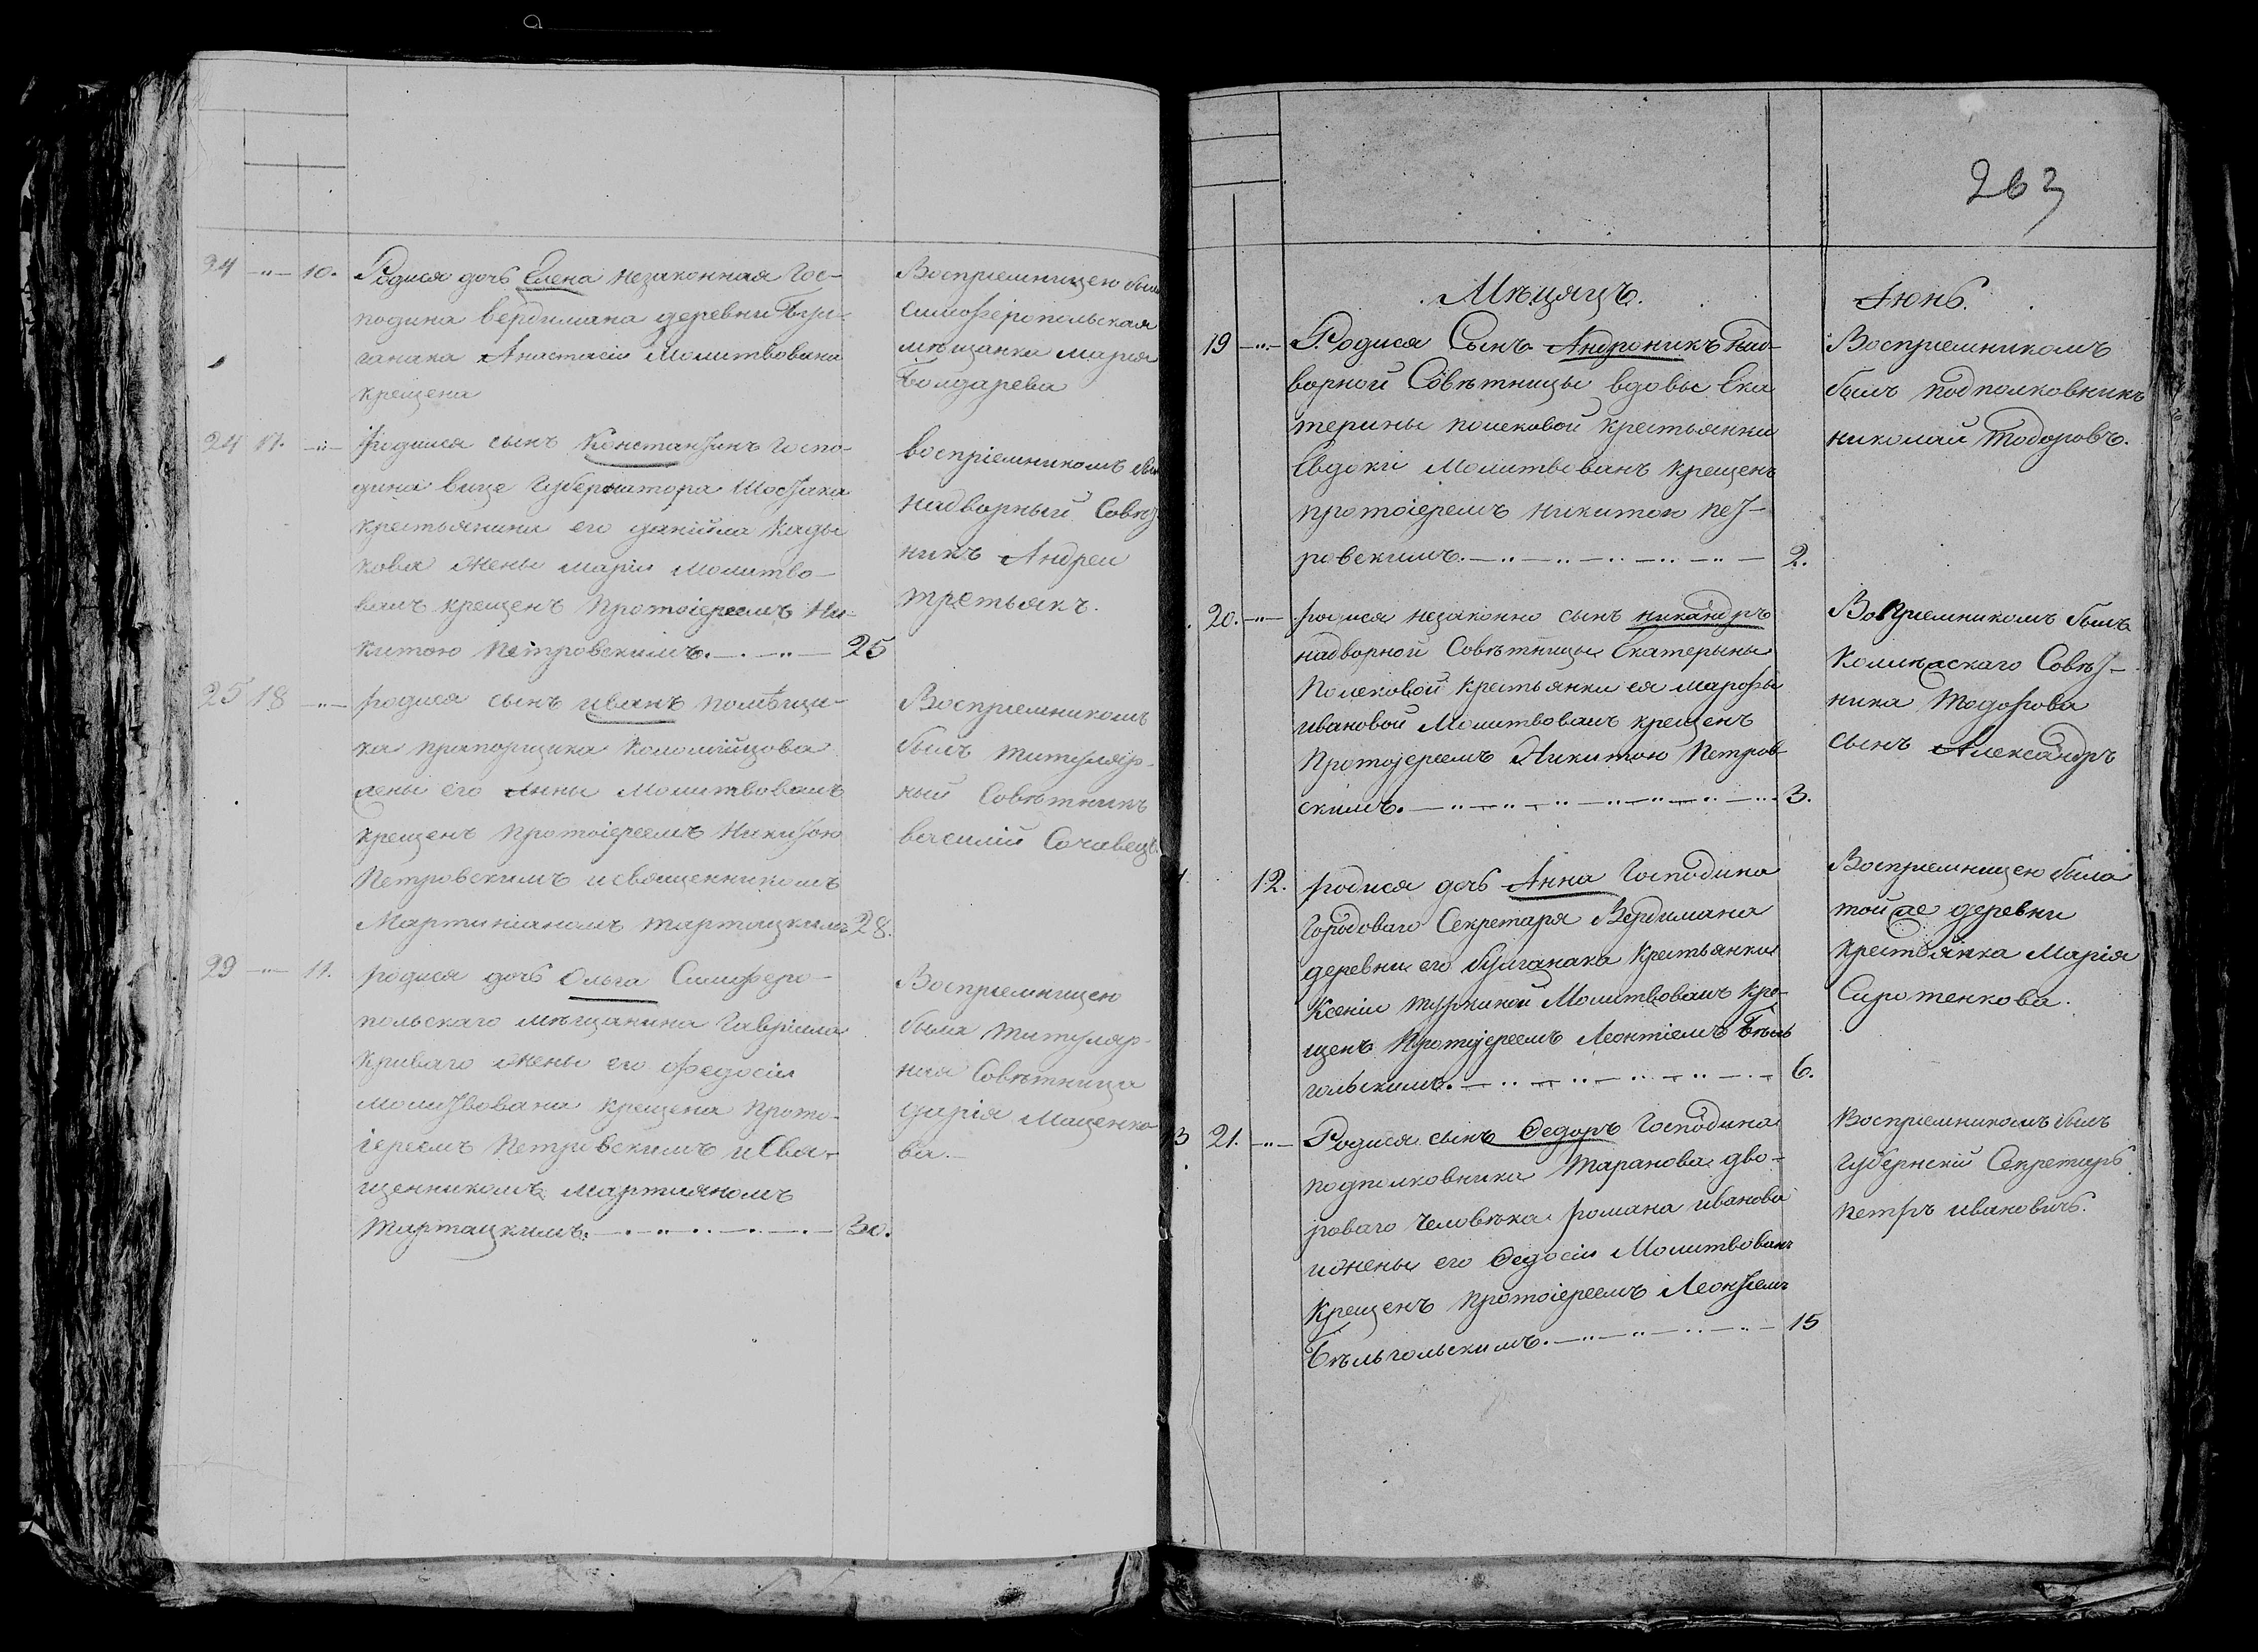 24 — 10. Родися дочь Елена незаконная Гос-
подина вердимана деревни Бул-
ганака Анастасіи Молитвована
крещена
Воспріемницею была
симферопольская
мѣщанка Марія
Болдарева
24 17. — родился сынъ Константинъ Госпо-
дина вице Губернатора Шостака
крестьянина его даніила Кады
кова жены маріи молитво-
ванъ крещенъ Протоіереемъ Ни-
китою Петровскимъ. 25
воспріемникомъ былъ
надворный Совѣт
никъ Андреи
третьякъ.
25 18 — родися сынъ иванъ помѣщи-
ка прапорщика Коломійцова
жены его Анны Молитвованъ
крещенъ протоіереемъ Никитою
Петровскимъ и священникомъ
Мартиніаномъ тартацкимъ 28.
Воспріемникомъ
былъ титуляр-
ный Совѣтникъ
василій Сочавецъ.
29 — 11. родися дочь Ольга Симферо-
польскаго мѣщанина Гавріила
Криваго жены его федосіи
молитвована крещена прото-
іереемъ Петровскимъ и Свя-
щенникомъ Мартияномъ
тартацкимъ. 30.
Воспріемницею
была титуляр-
ная Совѣтница
дарія Маценко-
ва.
263
Мѣцяцъ. Іюнь.
19 — Родися Сынъ Андроникъ Над-
ворной Совѣтницы вдовы Ека
терины поисковой крестьянки
Евдокі Молитвованъ крещенъ
протоіереемъ никитою пет-
ровскимъ. 2.
Воспріемникомъ
былъ подполковникъ
николай Тодоровъ.
20. — родися незаконно сынъ никандръ
надворной Совѣтницы Екатерыны
Крестьянки ея марфы
ивановой Молитвованъ крещенъ
Протоіереемъ Никитою Петров
скимъ. 3.
Воспріемникомъ былъ
Совѣт-
ника Тодорова
сынъ Александръ
12. родися дочь Анна Господина
Городоваго Секретаря Вердимана
деревни его булганака Крестьянки
Ксеніи Молитвованъ кре-
щенъ Протоіереемъ Леонтіемъ Бѣль
гольскимъ. 6.
Воспріемницею была
той же деревни
крестьянка Марія
Сиротенкова.
3 21. — Родися сынъ Ѳедоръ Господина
подполковника Таранова дво-
роваго человѣка романа иванова
и жены его Ѳедосіи Молитвованъ
Крещенъ протоіереемъ Леонтіемъ
Бѣльгольскимъ. 15
Воспріемникомъ былъ
Губернскій Секретарь
петръ ивановичь.